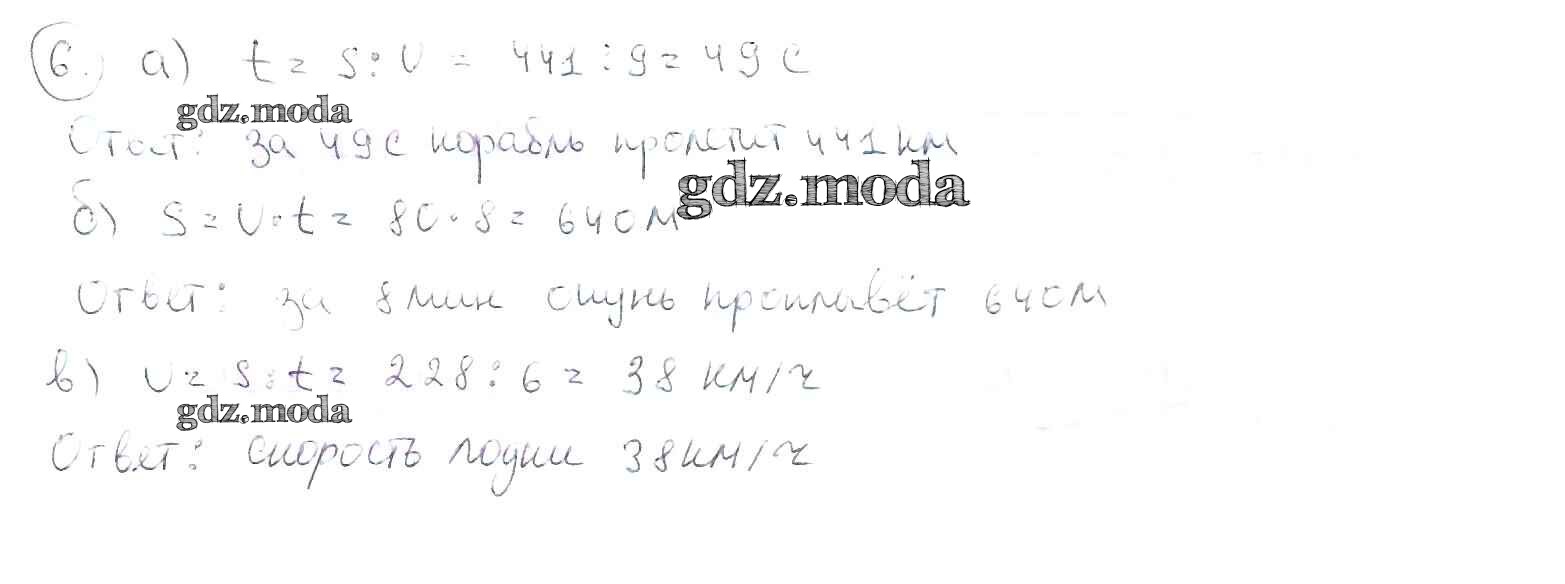 6. а) t = s : v = 441 : 9 = 49 с
gdz.moda
Ответ: за 49 с корабль пролетит 441 км
gdz.moda
б) s = v · t = 80 · 8 = 640 м
Ответ: за 8 мин окунь проплывёт 640 м
в) v = s : t = 228 : 6 = 38 км/ч
gdz.moda
Ответ: скорость лодки 38 км/ч